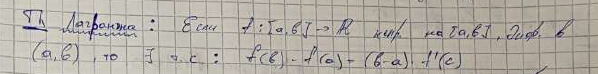 Th Лагранжа: Если f: [a,b] → R непр. на [a,b], диф. в
(a,b), то ∃ т. c: f(b) - f(a) = (b-a) · f'(c)